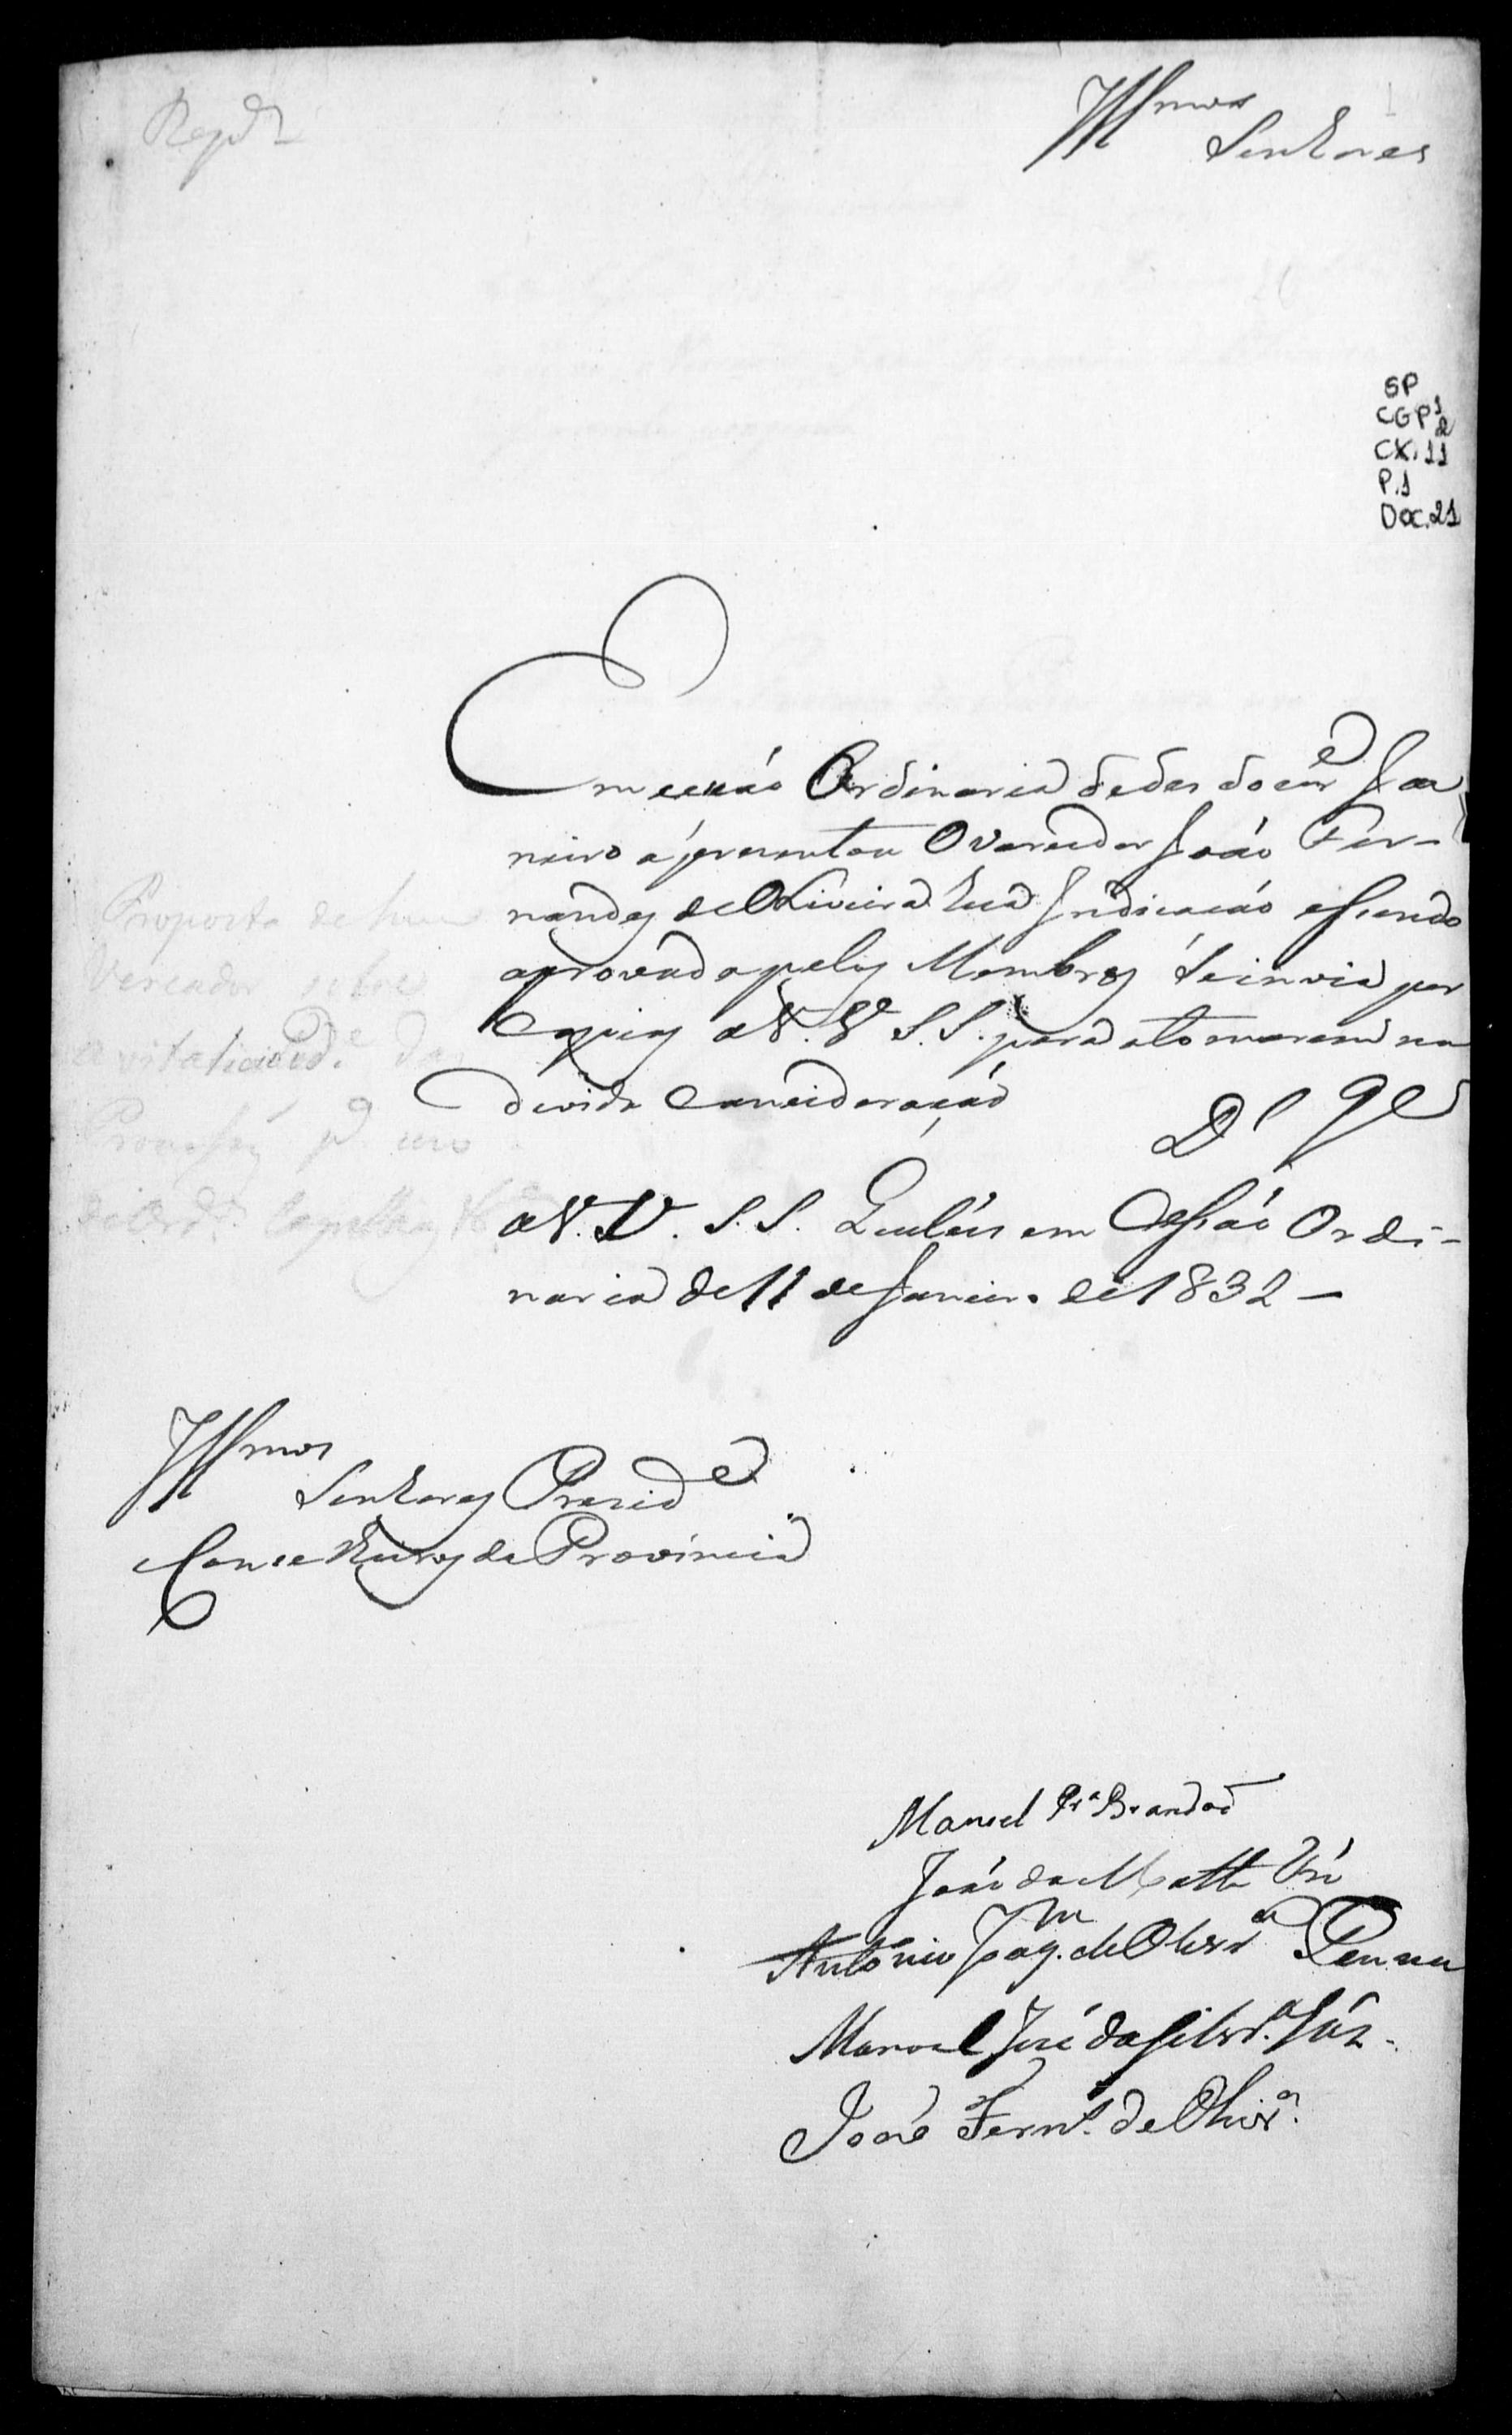 Illmos
Senhores
SP
CGP 1
2
CX. 11
P. 1
DOC. 21
Em cecsáo Ordinaria de des do corre Ja
neiro apresentou O Vereador João Fer-
nandes de Oliveira hua Indicacáo esendo
aprovada pelos Membros se invia por
Copias a V. V. S.S. para a tomarem na
divida Consideraçáo
Ds Ge
a V. V. S. S. Queluz em Cessáo Ordi-
naria de 11 de Janeiro de 1832 —
Proposta de hum
Vereador sobre
a vitaliciede. das
Illmos
Senhores Preside
Conselheiros da Provincia
Manoel Pra Brandaõ
João da Matta
Antônio Joaqm de Olivra Penna
Manoel José da Silvra.
João Fernes. de Olivra.